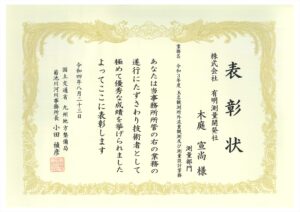 表彰状
株式会社 有明測量開発社
木庭 宣尚 様
測量部門
業務名 令和3年度
あなたは当事務所所管の右の業務の
遂行にたずさわり技術者として
極めて優秀な成績を挙げられました
よってここに表彰します
令和四年八月二十三日
国土交通省 九州地方整備局
菊池川河川事務所長 小田 禎彦